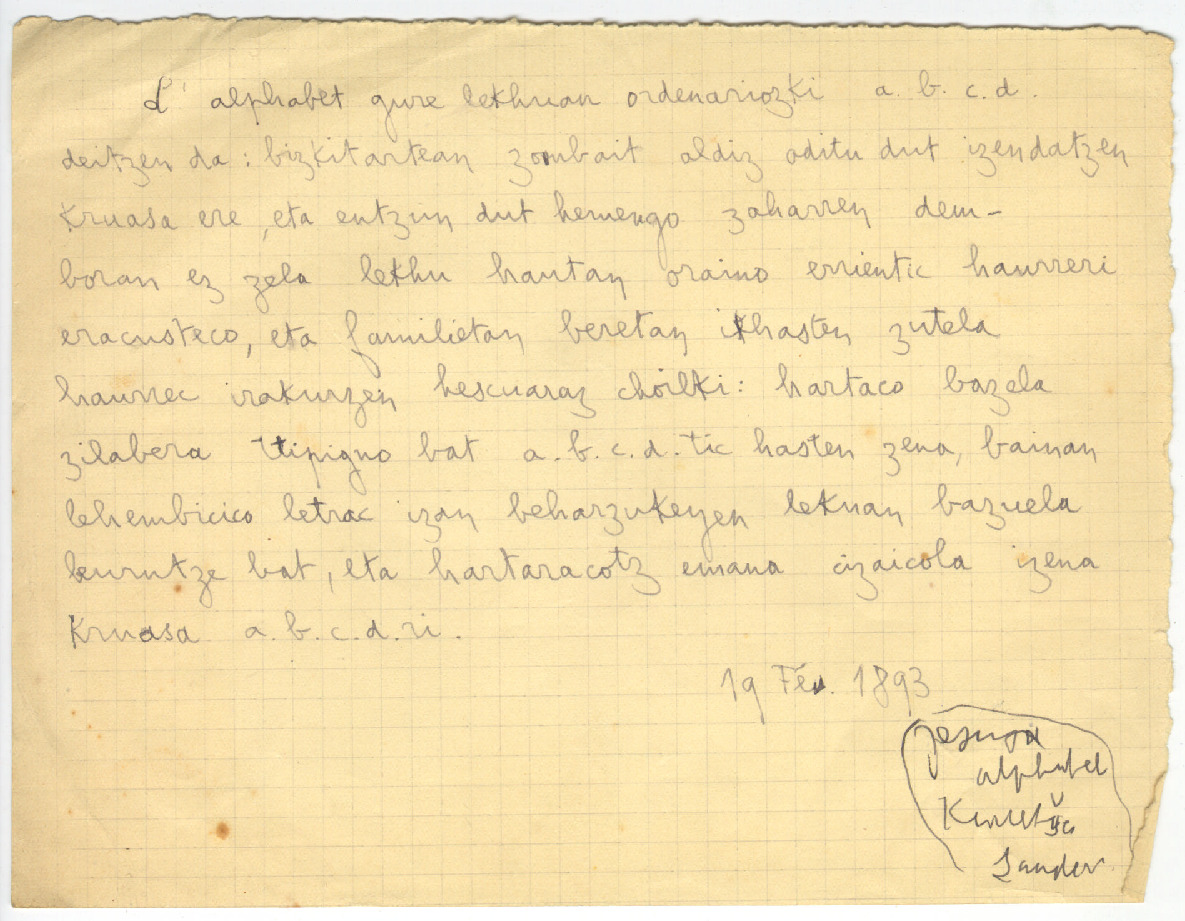 L'alphabet gure lekhuan ordenariozki a. b. c. d.
deitzen da : bizkitartean zombait aldiz aditu dut izendatzen
Kruasa ere, eta entzun dut hemengo zaharren dem-
boran ez zela lekhu hautan oraino errientic haurreri
eracusteco, eta familietan beretan ikhasten zutela
haurrec irakurzen hescuaraz choilki : hartaco bazela
zilabera ttipigno bat a. b. c. d. tic hasten zena, bainan
lehembicico letrac izan beharzukeyen lekuan bazuela
kurutze bat, eta hartaracotz emana cizaicola izena
Kruasa a. b. c. d. ri.
19 Fév. 1893
alphabet